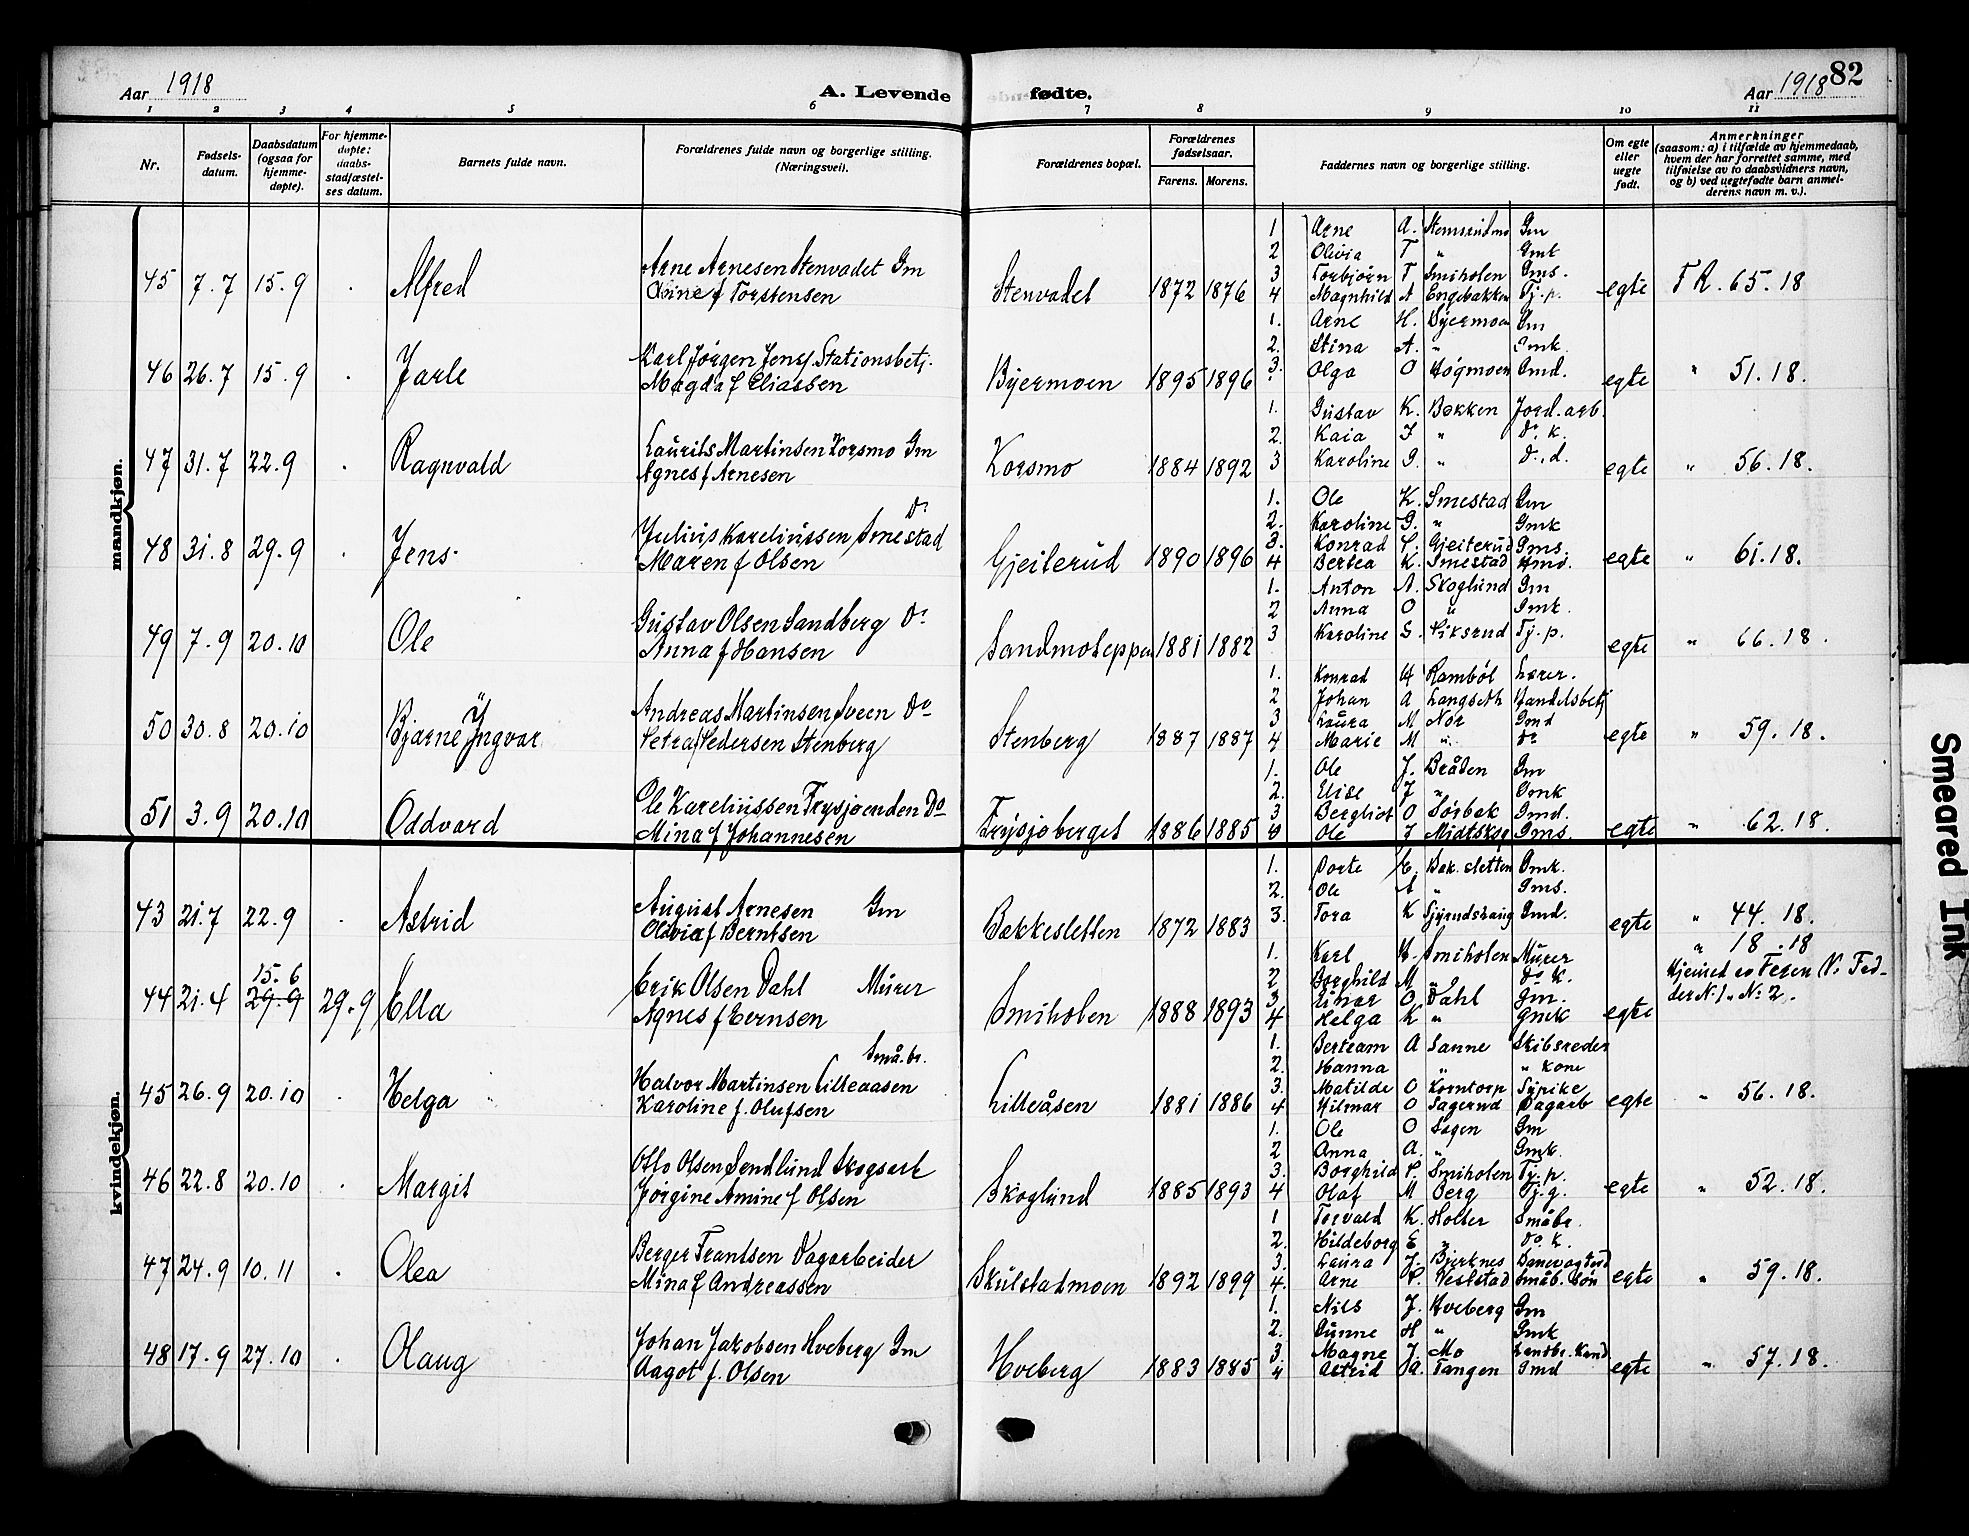 Aar 1918
A. Levende
fødte.
Aar 1918
82
1 2 3 4 5 6 7 8 9 10 11
Nr.
Fødsels-
datum.
Daabsdatum
(ogsaa for
hjemme-
døpte).
For hjemme-
døpte:
daabs-
stadfæstel-
ses datum.
Barnets fulde navn.
Forældrenes fulde navn og borgerlige stilling.
(Næringsvei).
Forældrenes bopæl.
Forældrenes
fødselsaar.
Farens. Morens.
Faddernes navn og borgerlige stilling.
Om egte
eller
uegte
født.
Anmerkninger
(saasom: a) i tilfælde av hjemmedaab,
hvem der har forrettet samme, med
tilføielse av to daabsvidners navn,
og b) ved uegtefødte barn anmel-
derens navn m. v.).
mandkjøn.
45 7.7 15.9 Alfred
Arne Arnesen Stenvadet Gm
f Torstensen
Stenvadet 1872 1876
1 Arne A. Gm
2 Olivia T " Gmk
3 Torbjørn T Smiholen Gms.
4 Magnhild A Engebakken Tj.p.
egte F R. 65.18
46 26.7 15.9 Jarle
Karl Jørgen Jens. Stationsbetj.
Magda f Eliassen
Byermoen 1895 1896
1. Arne H. Byermoen Gm
2. Stina A. " Gmk.
3. Olga O Høgmoen Gmd.
egte " 51.18.
47 31.7 22.9 Ragnvald
Laurits Martinsen Korsmo Gm
Agnes f Arnesen
Korsmo 1884 1892
1. Gustav K. Bakken Jord.arb.
2. Kaia J " Do k.
3 Karoline G. " Do. d.
egte " 56.18.
48 31.8 29.9 Jens
Do
Julius Kareliussen Smestad
Maren f Olsen
Gjeiterud 1890 1896
1. Ole K. Smestad Gm
2. Karoline G. " Gmk
3. Konrad P. Gjeiterud Gms.
4 Bertea K. Smestad Gmd.
egte " 61.18.
49 7.9 20.10 Ole
Gustav Olsen Sandberg Do
Anna f Hansen
Sandmoteppen 1881 1882
1. Anton A. Skoglund Gm
2 Anna O " Gmk.
3 Karoline S. Tj.p.
egte " 66.18.
50 30.8 20.10 Bjarne Yngvar
Andreas Martinsen Sveen Do
Petra Pedersen Stenberg
Stenberg 1887 1887
1. Konrad Rambøl Lærer.
2 Johan A Langseth Handelsbetj
3 Laura M Nor Gmd
4 Marie M " Do
egte " 59.18.
51 3.9 20.10 Oddvard
Ole Kareliussen Frysjøenden Do
Mina f Johannesen
Frysjøberget 1886 1885
1. Ole J. Bråten Gm
2. Elise J " Gmk
3 Bergliot O Sørbak Gmd.
4 Ole J Midtskog Gms.
egte " 62.18.
kvindekjøn.
43 21.7 22.9 Astrid
August Arnesen Gm
Olivia f Berntsen
Bakkesletten 1872 1883
1. Dorte E. Bak.sletten Gmk.
2. Ole A " Gms.
3. Tora K Gmd.
egte " 44.18.
15.6
44 21.4 29.9 29.9 Ella
Erik Olsen Dahl Murer
Agnes f Evensen
Smiholen 1888 1893
1. Karl Smiholen Murer
2 Borghild M " Do K.
3. Einar O. Dahl Gm.
4 Helga K " Gmk
egte " 18.18
Hjemed av
der No 1 " No 2.
45 26.9 20.10 Helga
Små.br.
Halvor Martinsen Lilleaasen
Karoline f. Olufsen
Lilleåsen 1881 1886
1. Bertram A Sanne Skibsreder
2. Hanna " " kone
3. Matilde O Korntorp Sypike
4 Hilmar O Sagerud Dagarb
egte " 56.18.
46 22.8 20.10 Margit
Otto Olsen Sendlund Skogsarb
Jørgine Amine f Olsen
Skoglund 1885 1893
1. Ole O Sagen Gm
2 Anna A. " Gmk.
3. Borghild P. Smiholen Tj.p.
4 Olaf M Berg Tj.g.
egte " 52.18.
47 24.9 10.11 Olea
Berger Frantsen Dagarbeider
Mina f Andreassen
Skulstadmoen 1892 1899
1 Torvald K. Holter Småbr.
2. Hildeborg E " Do k.
3. Laura J. Bjerknes
4. Arne P. Veslstad Småb. søn
egte " 59.18.
48 17.9 27.10 Olaug
Johan Jakobsen Hveberg Gm
Aagot f. Olsen
Hveberg 1883 1885
1. Nils J. Hveberg Gm
2. Gunne H " Gmk
3. Magne J Mo Landbr.kand
4 Astrid A. Tangen Gmd
egte " 57.18.
Smeared Ink